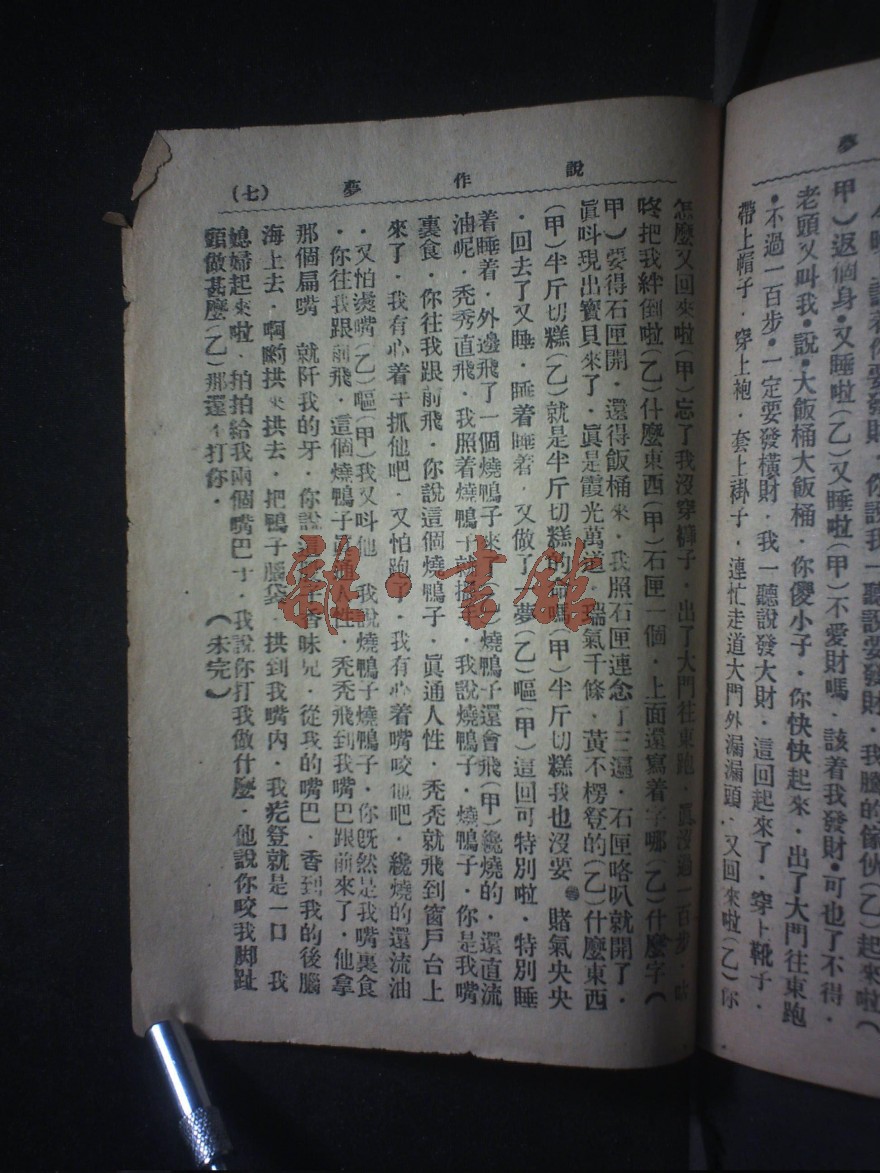 夢
今睡．說着你要發財．你說我一聽說要發財．我騰的傢伙（乙）起來啦（
甲）返個身●又睡啦（乙）又睡啦（甲）不愛財嗎．該着我發財●可也了不得．
老頭又叫我●說●大飯桶大飯桶．你傻小子．你快快起來．出了大門往東跑
●不過一百步●一定要發橫財．我一聽說發大財．這回起來了．穿上靴子．
帶上帽子．穿上袍．套上褂子．連忙走道大門外漏漏頭．又回來啦（乙）你
說作夢
（七）
怎麼又回來啦（甲）忘了我沒穿褲子．出了大門往東跑．眞沒過一百步．咕
咚把我絆倒啦（乙）什麼東西（甲）石匣一個．上面還寫着字哪（乙）什麼字（
甲）要得石匣開．還得飯桶來．我照石匣連念了三遍．石匣咯叭就開了．
眞呌現出寶貝來了．眞是霞光萬道．瑞氣千條．黃不楞登的（乙）什麼東西
（甲）半斤切糕（乙）就是半斤切糕的命嗎（甲）半斤切糕我也沒要 賭氣央央
．回去了又睡．睡着睡着．又做了 夢（乙）嘔（甲）這回可特別啦．特別睡
着睡着．外邊飛了一個燒鴨子來（乙）燒鴨子還會飛（甲）纔燒的．還直流
油呢．禿秀直飛．我照着燒鴨子就招手．我說燒鴨子．燒鴨子．你是我嘴
裏食．你往我跟前飛．你說這個燒鴨子．眞通人性．禿禿就飛到窗戶台上
來了．我有心着手抓他吧．又怕跑了．我有心着嘴咬他吧．纔燒的還流油
．又怕燙嘴（乙）嘔（甲）我又呌他 我說燒鴨子燒鴨子．你既然是我嘴裏食
．你往我跟前飛．這個燒鴨子眞通人性．禿禿飛到我嘴巴跟前來了．他拿
那個扁嘴 就阡我的牙．你說這股子香味兒．從我的嘴巴．香到我的後腦
海上去．啊喲拱來拱去．把鴨子腦袋．拱到我嘴內．我疙登就是一口 我
媳婦起來啦．拍拍給我兩個嘴巴子．我說你打我做什麼．他說你咬我脚趾
頭做甚麼（乙）那還不打你．（未完）
雜·書館